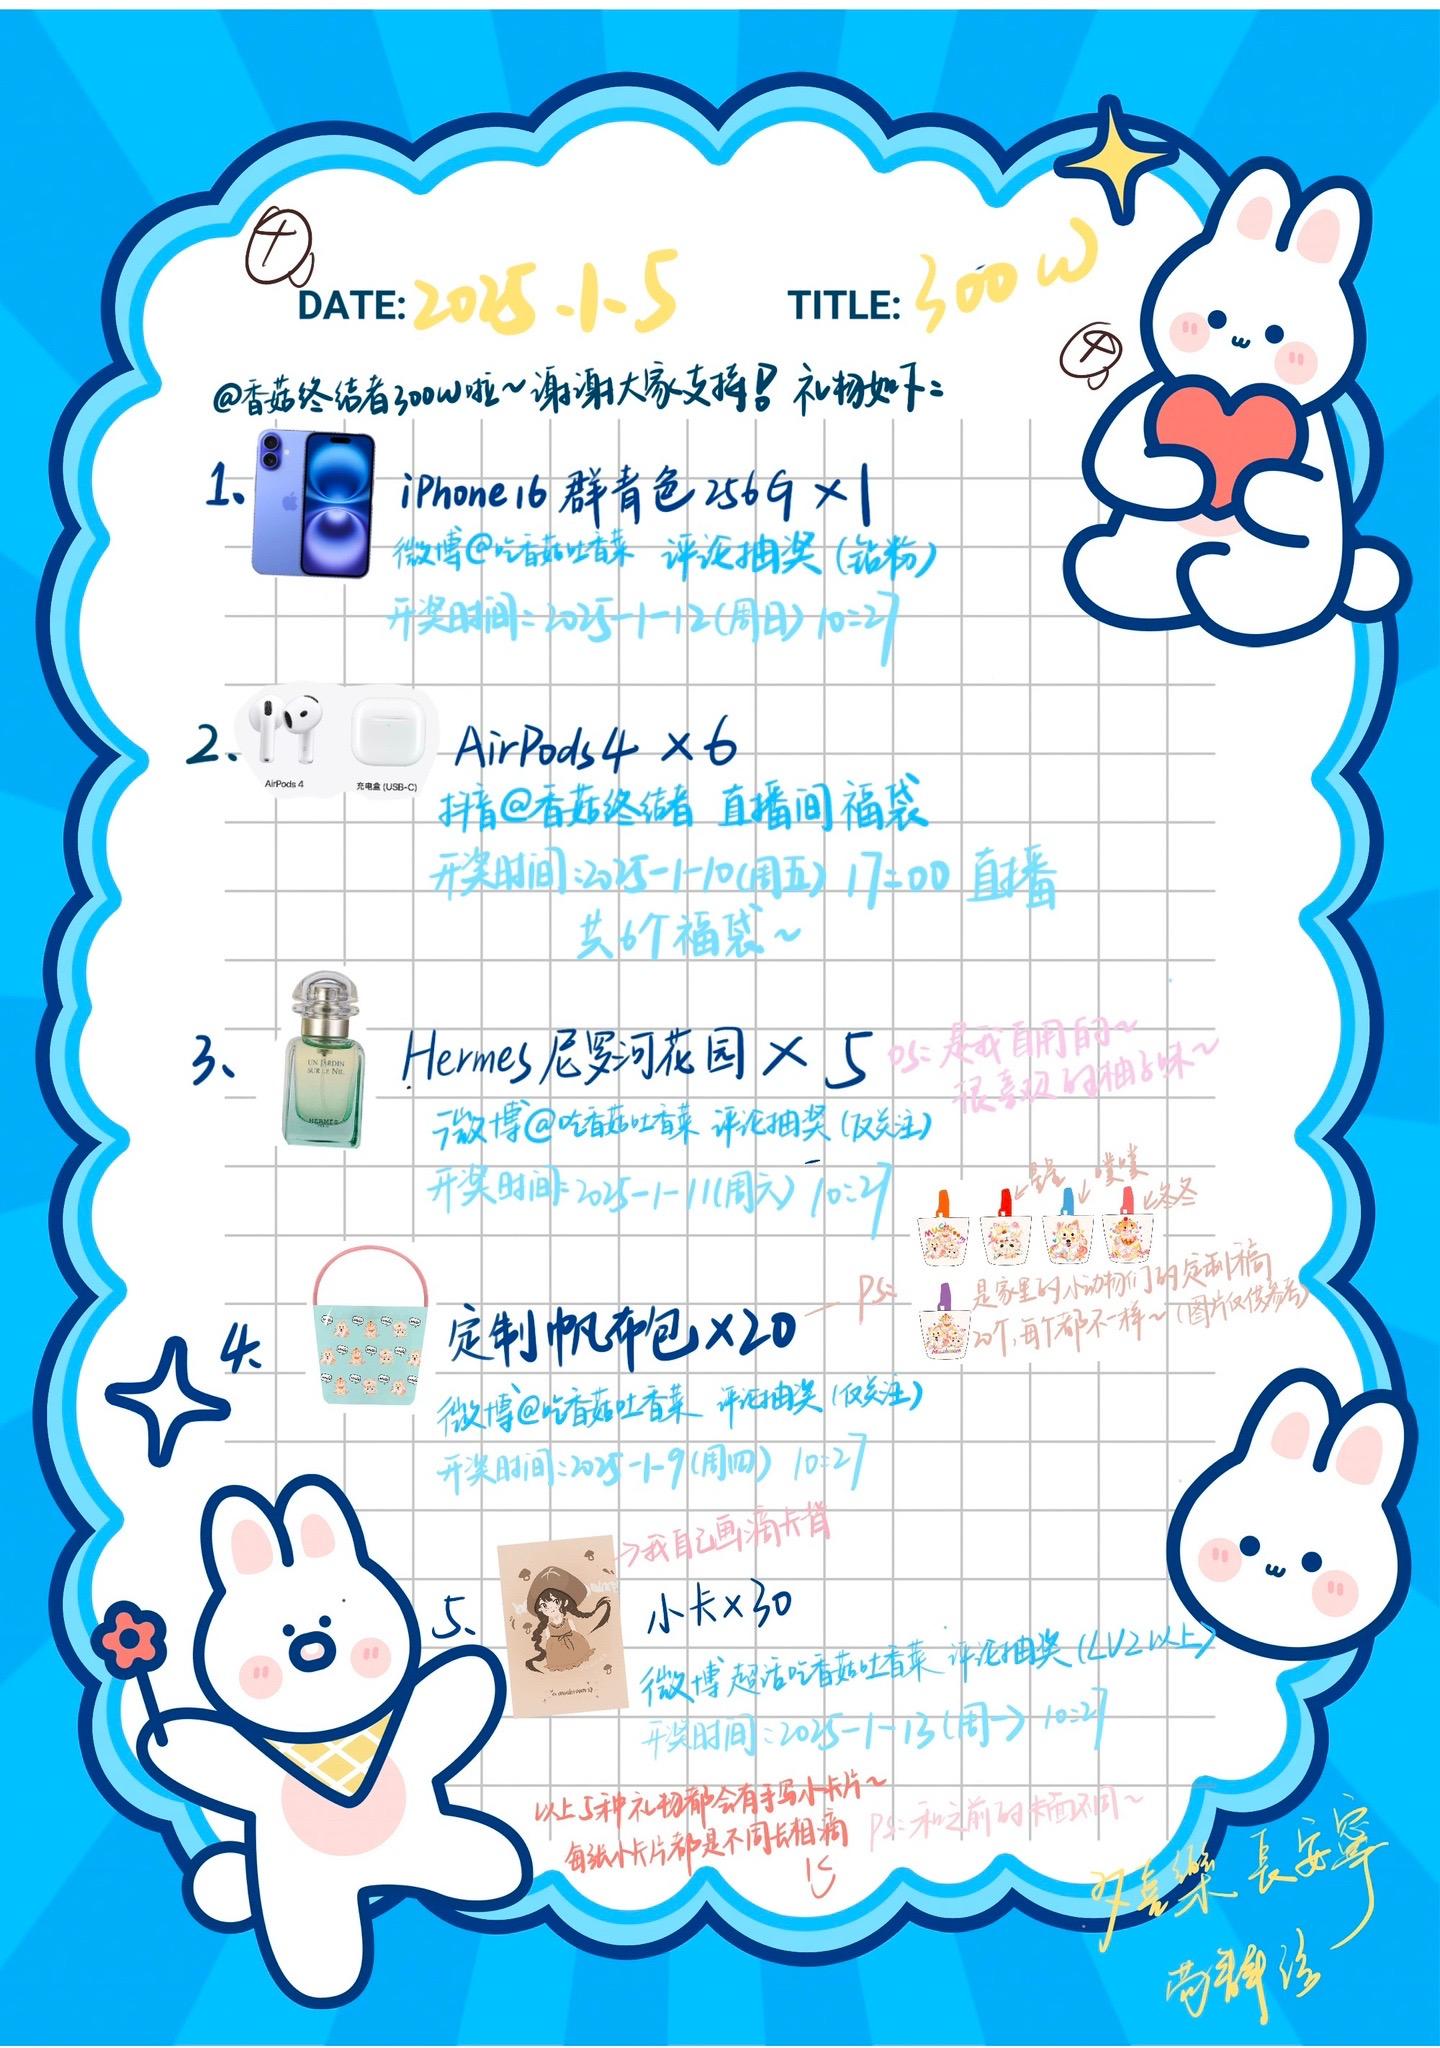 DATE: 2025.1.5
TITLE: 300W
@香菇终结者300W啦~谢谢大家支持! 礼物如下:
1、iPhone16 群青色 256G ×1
微博@吃香菇吐香菜 评论抽奖(钻粉)
开奖时间:2025-1-12(周日) 10:27
2、AirPods4 ×6
AirPods 4
充电盒 (USB-C)
抖音@香菇终结者 直播间福袋
开奖时间:2025-1-10(周五) 17:00 直播
共6个福袋~
3、Hermes 尼罗河花园 × 5
UN JARDIN
SUR LE NIL
HERMÈS
PS:是我自用的~
很喜欢的柚子味~
微博@吃香菇吐香菜 评论抽奖(仅关注)
开奖时间:2025-1-11(周六) 10:27
噗噗
冬冬
4、定制帆布包×20
PS:
是家里的小动物们的定制稿
20个,每个都不一样~(图片仅供参考)
微博@吃香菇吐香菜 评论抽奖(仅关注)
开奖时间:2025-1-9(周四) 10:27
→我自己画滴卡背
5、小卡×30
微博超话吃香菇吐香菜 评论抽奖(LV2以上)
开奖时间:2025-1-13(周一) 10:27
以上5种礼物都会有手写小卡片~
每张小卡片都是不同长相滴
PS:和之前的卡面不同~
多喜樂 長安寧